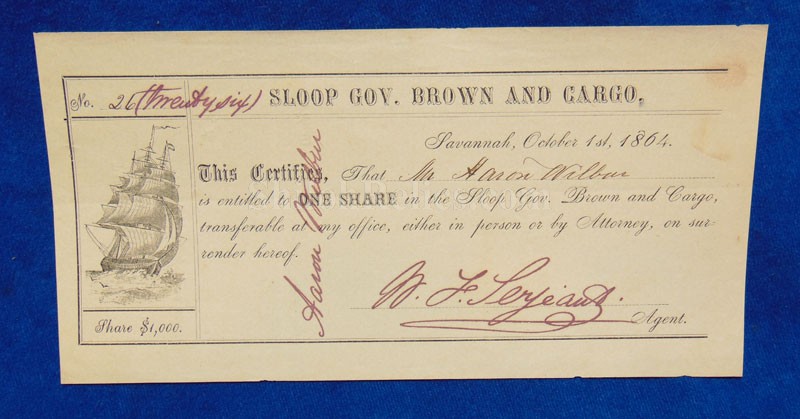 No. 26 (twenty six) SLOOP GOV. BROWN AND CARGO,
Savannah, October 1st, 1864.
This Certifies, That Mr Aaron Wilbur
is entitled to ONE SHARE in the Sloop Gov. Brown and Cargo,
transferable at my office, either in person or by Attorney, on sur-
render hereof.
Aaron Wilbur
W. F. Serjeant.
Agent.
Share $1,000.